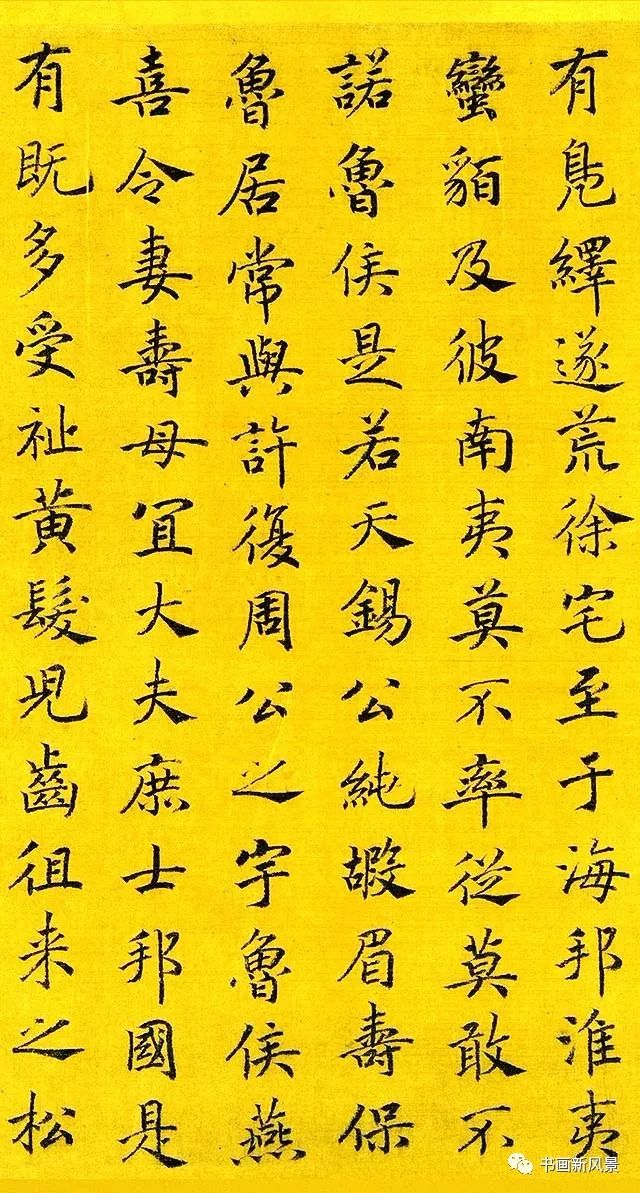 有鳧繹遂荒徐宅至于海邦淮夷
蠻貊及彼南夷莫不率從莫敢不
諾魯侯是若天錫公純嘏眉壽保
魯居常與許復周公之宇魯侯燕
喜令妻壽母宜大夫庶士邦國是
有既多受祉黃髮兒齒徂来之松
书画新风景